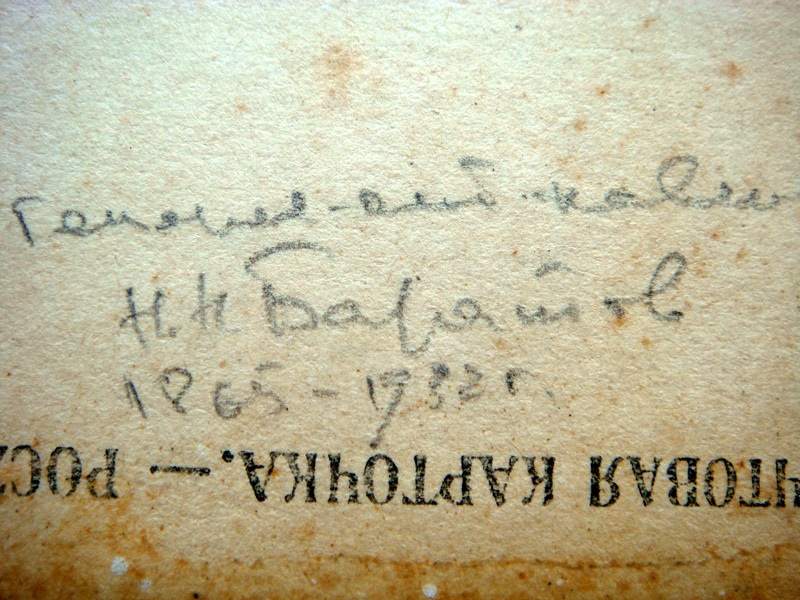 Генерал-от-кавале
Н.Н Баратов
1865-1932 г.
ЧТОВАЯ КАРТОЧКА. — РОС